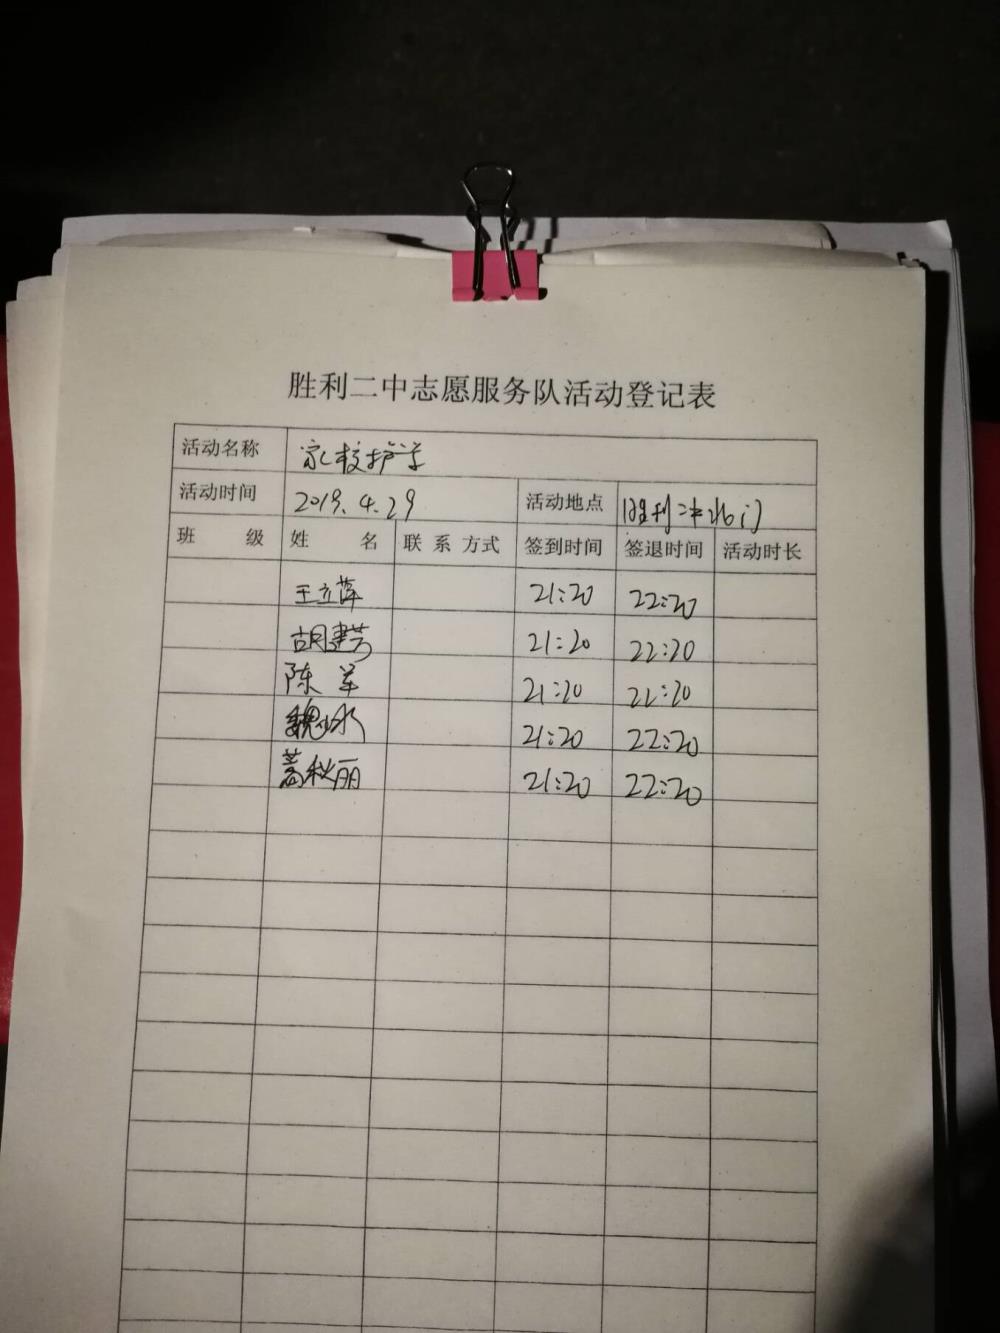 胜利二中志愿服务队活动登记表
活动名称 家校护学
活动时间 2019.4.29 活动地点 胜利二中北门
班 级 姓 名 联系方式 签到时间 签退时间 活动时长
王立萍 21:20 22:20
胡建芳 21:20 22:20
陈军 21:20 22:20
魏 21:20 22:20
秋丽 21:20 22:20